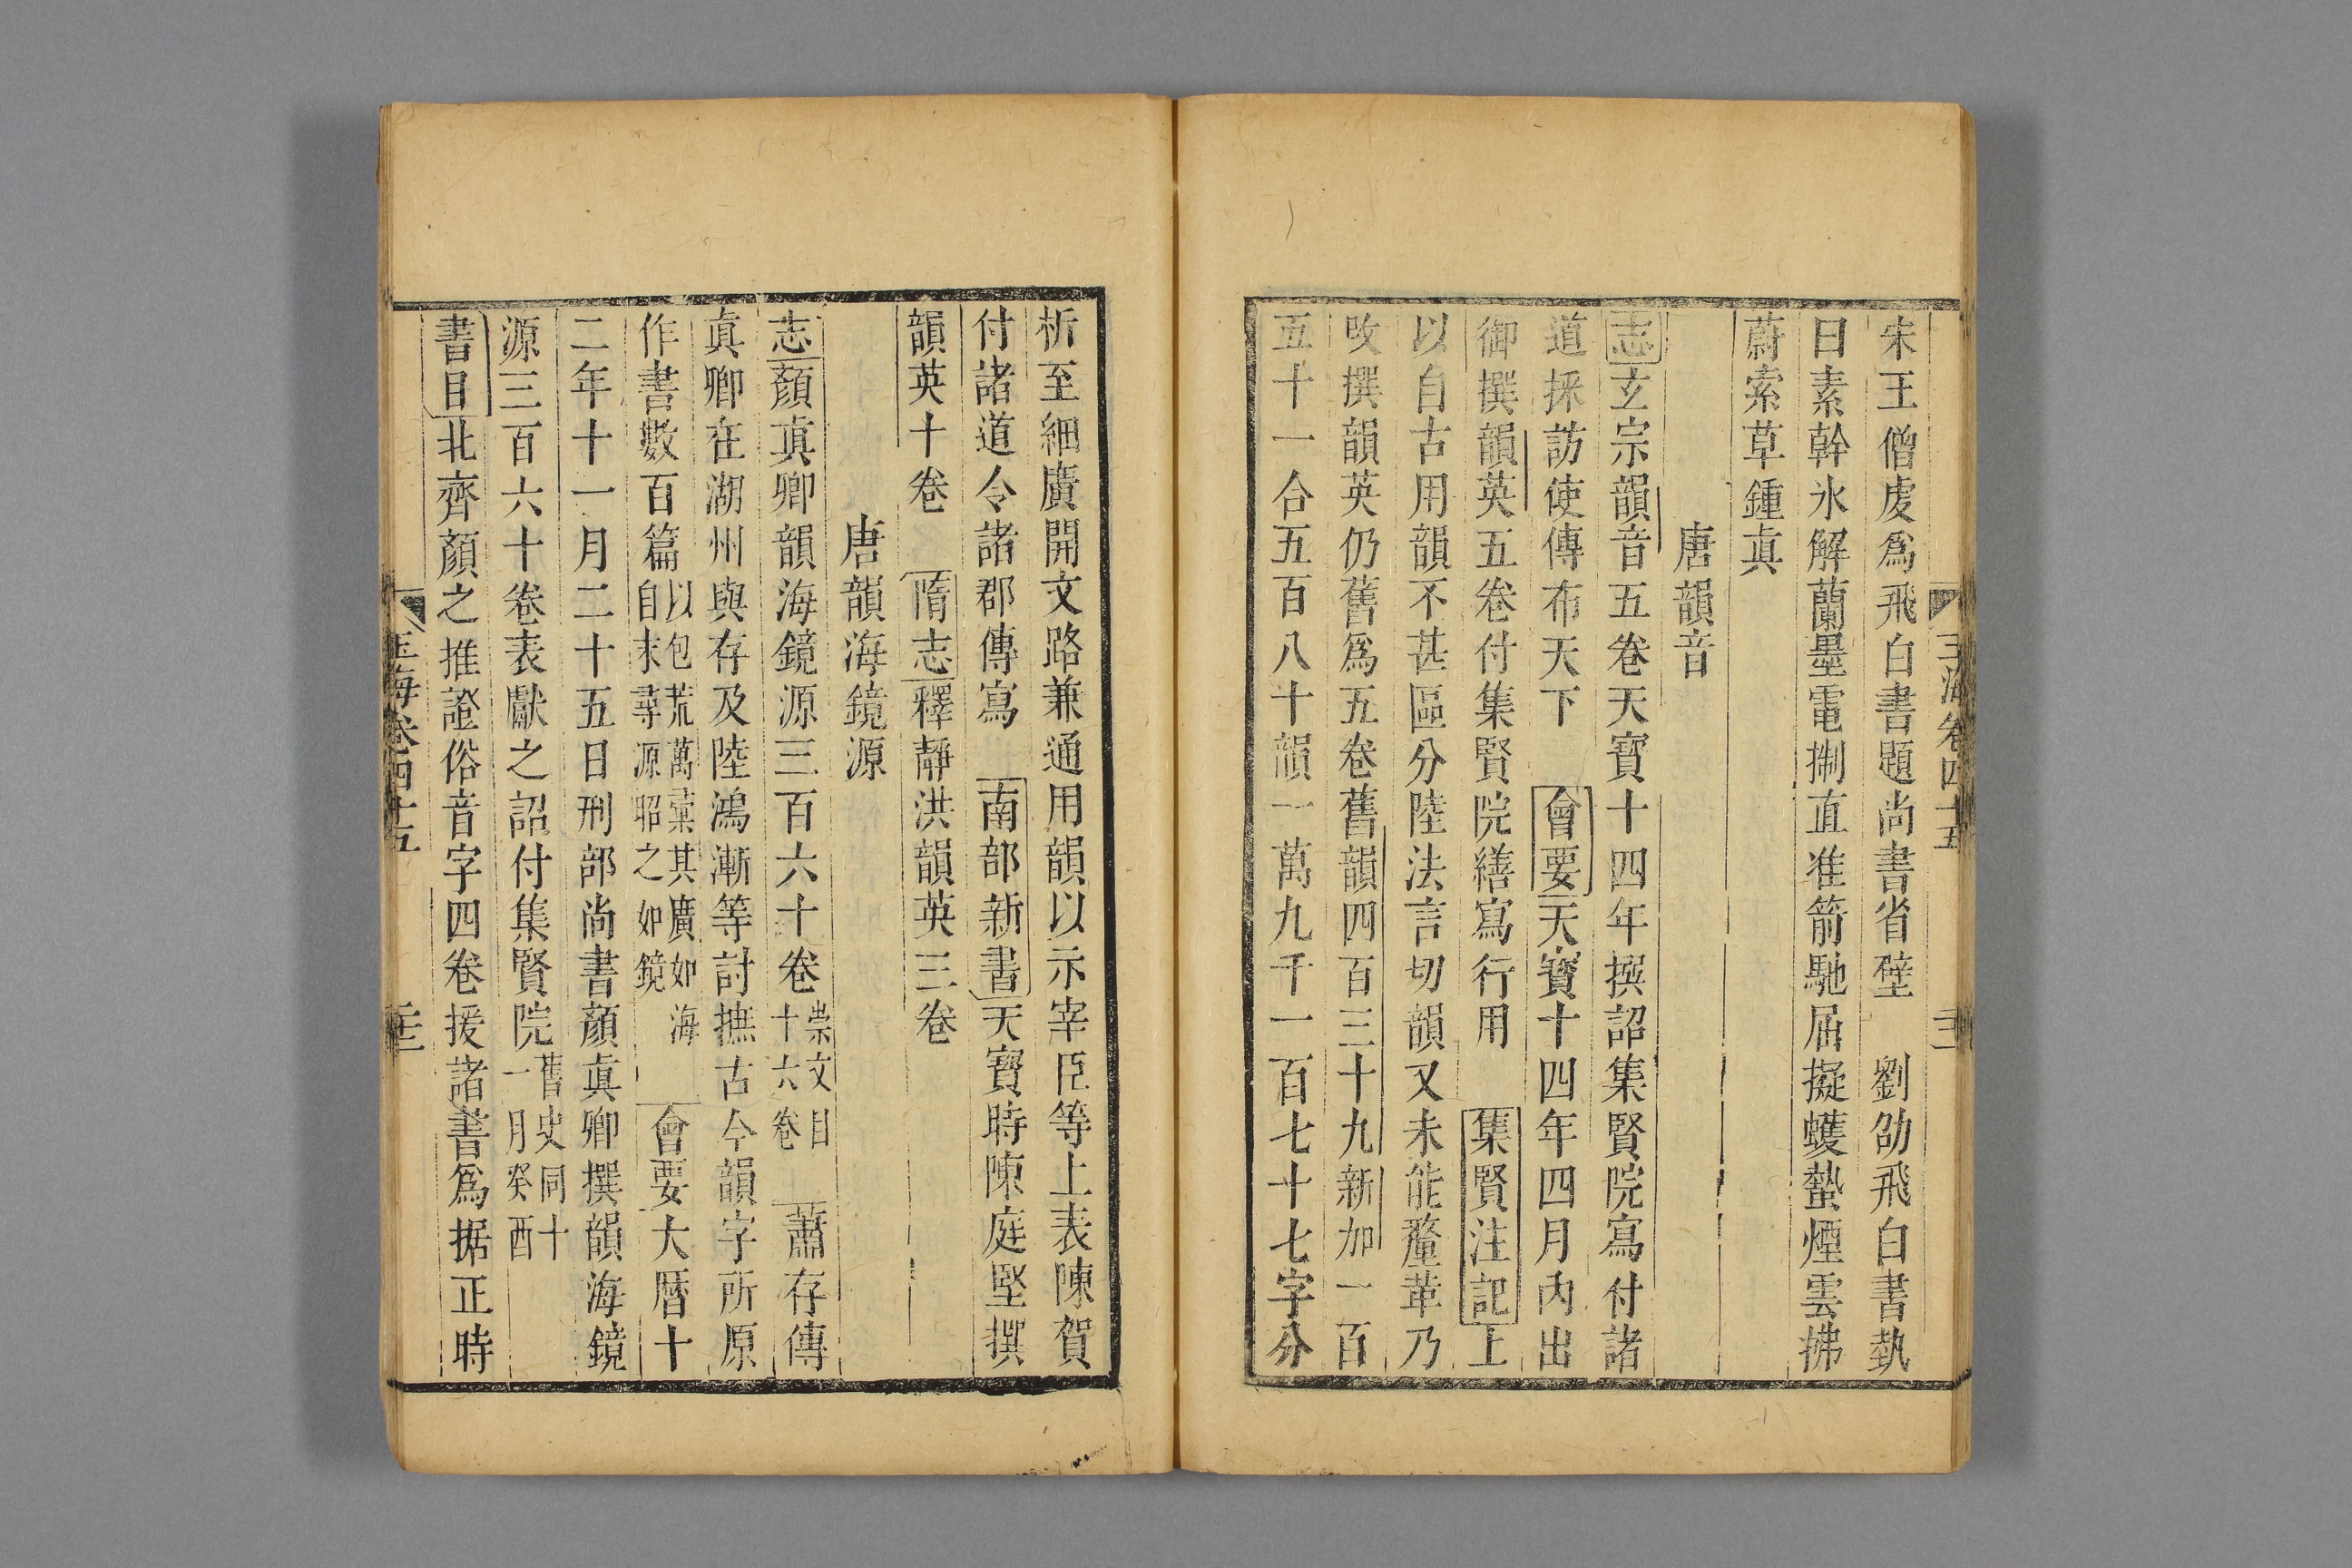 玉海卷四十五 三
宋王僧虔爲飛白書題尚書省壁　劉劭飛白書埶
曰素幹氷解蘭墨電掣直准箭馳屈擬蠖蟄煙雲拂
蔚索草鍾真
唐韻音
志玄宗韻音五卷天寶十四年撰詔集賢院寫付諸
道採訪使傳布天下　會要天寶十四年四月內出
御撰韻英五卷付集賢院繕寫行用　集賢注記上
以自古用韻不甚區分陸法言切韻又未能釐革乃
攺撰韻英仍舊爲五卷舊韻四百三十九新加一百
五十一合五百八十韻一萬九千一百七十七字分
析至細廣開文路兼通用韻以示宰臣等上表陳賀
付諸道令諸郡傳寫　南部新書天寶時陳庭堅撰
韻英十卷　隋志釋靜洪韻英三卷
唐韻海鏡源
志顏真卿韻海鏡源三百六十卷崇文目十六卷　蕭存傳
真卿在湖州與存及陸鴻漸等討摭古今韻字所原
作書數百篇以包荒萬彙其廣如海自末尋源昭之如鏡　會要大曆十
二年十一月二十五日刑部尚書顏真卿撰韻海鏡
源三百六十卷表獻之詔付集賢院舊史同十一月癸酉
書目北齊顏之推證俗音字四卷援諸書爲据正時
玉海卷四十五